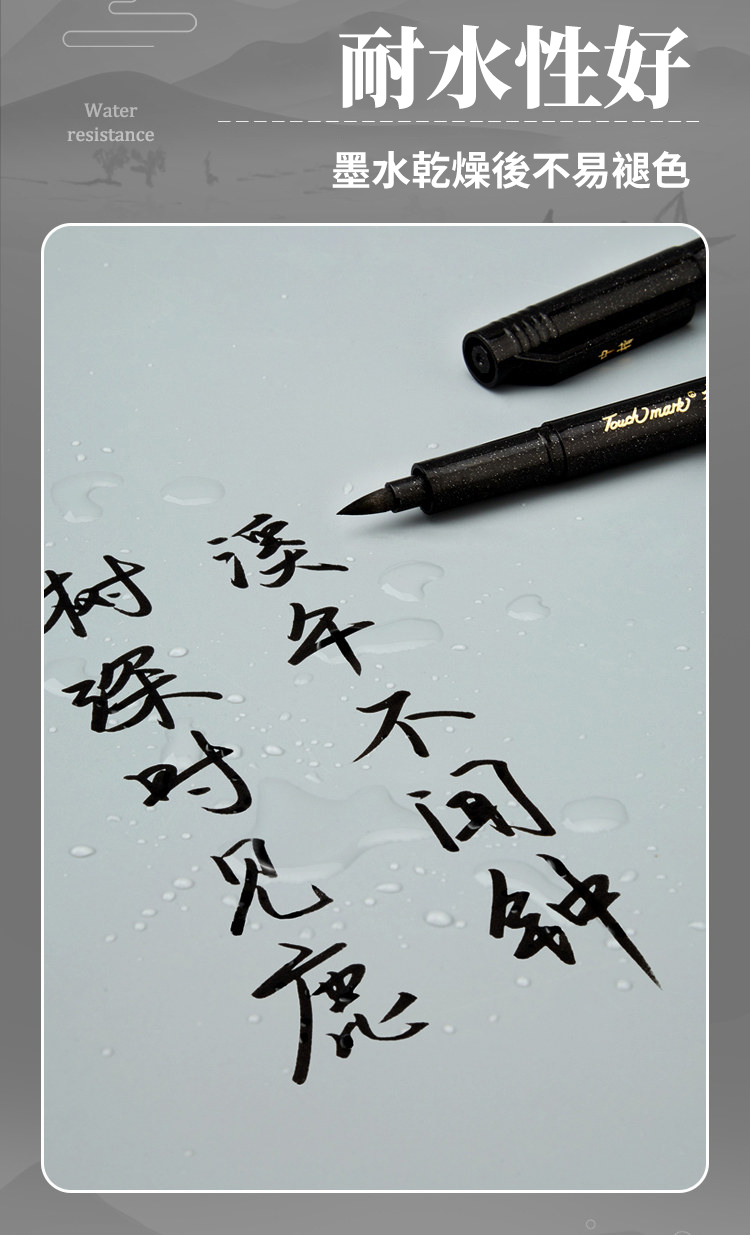 耐水性好
Water
resistance
墨水乾燥後不易褪色
Touch mark
溪午不闻钟
树深时见鹿